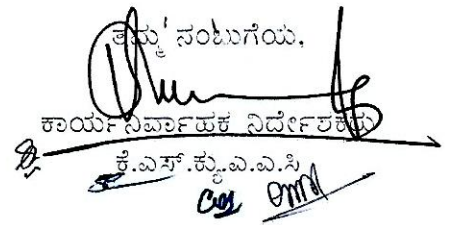 ತಮ್ಮ ನಂಬುಗೆಯ,
ಕಾರ್ಯನಿರ್ವಾಹಕ ನಿರ್ದೇಶಕರು
ಕೆ.ಎಸ್.ಕ್ಯು.ಎ.ಎ.ಸಿ